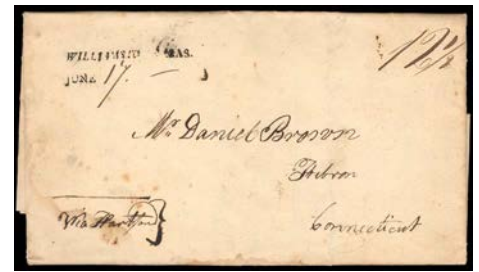 MAS.
JUNE 17. —
12 1/2
Mr. Daniel Brown
Hebron
Connecticut
Via Hartford